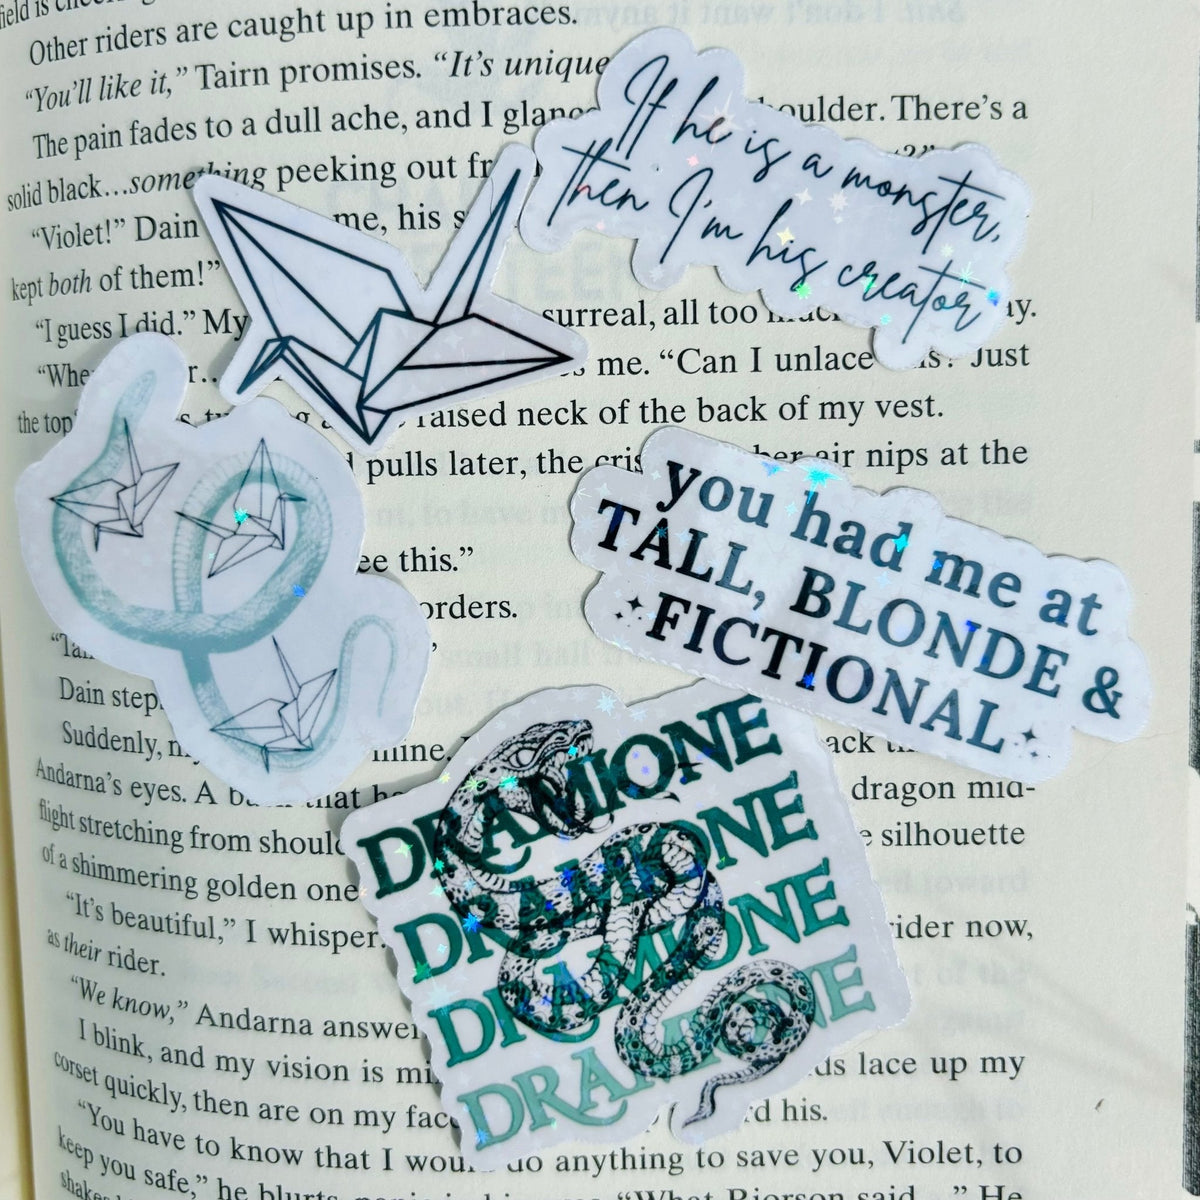 Other riders are caught up in embraces.
“You’ll like it,” Tairn promises. “It’s unique
The pain fades to a dull ache, and I glance houlder. There’s a
solid black…something peeking out
“Violet!” Dain me, his
kept both of them!”
“I guess I did.” My surreal, all too
me. “Can I unlace Just
the top raised neck of the back of my vest.
pulls later, the air nips at the
ee this.”
orders.
Dain step
Suddenly, mine.
Andarna’s eyes. A that dragon mid-
flight stretching from should silhouette
of a shimmering golden one
“It’s beautiful,” I whisper. rider now,
as their rider.
“We know,” Andarna answer
I blink, and my vision is lace up my
corset quickly, then are on my face his.
“You have to know that I would do anything to save you, Violet, to
keep you safe,” he blurts, “What Riorson said…” He
If he is a monster,
then I’m his creator
you had me at
TALL, BLONDE &
FICTIONAL
DRAMIONE
DRAMIONE
DRAMIONE
DRAMIONE